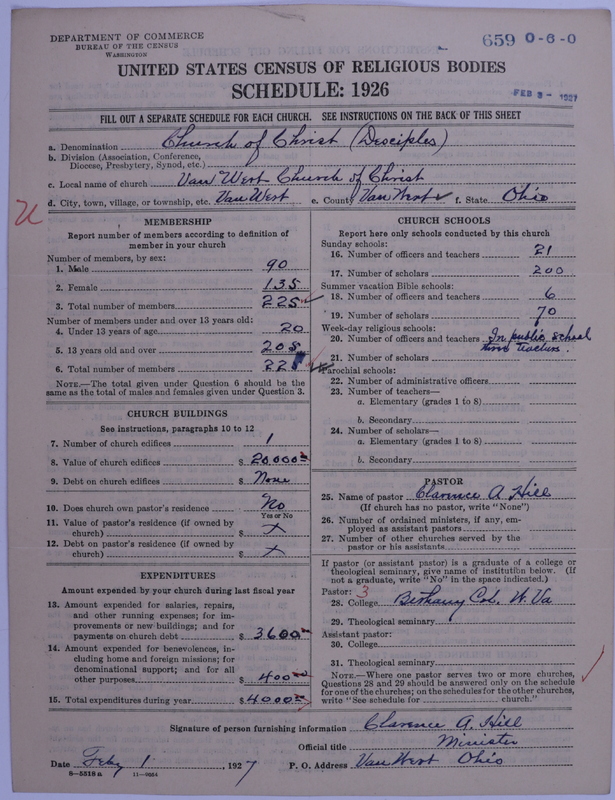 DEPARTMENT OF COMMERCE
BUREAU OF THE CENSUS
WASHINGTON
659 0-6-0
UNITED STATES CENSUS OF RELIGIOUS BODIES
SCHEDULE: 1926
FEB 3 - 1927
FILL OUT A SEPARATE SCHEDULE FOR EACH CHURCH. SEE INSTRUCTIONS ON THE BACK OF THIS SHEET
a. Denomination Church of Christ (Disciples)
b. Division (Association, Conference, Diocese, Presbytery, Synod, etc.)
c. Local name of church Van Wert Church of Christ
d. City, town, village, or township, etc. Van Wert e. County Van Wert f. State Ohio
MEMBERSHIP
Report number of members according to definition of
member in your church
Number of members, by sex:
1. Male 90
2. Female 135
3. Total number of members 225
Number of members under and over 13 years old:
4. Under 13 years of age 20
5. 13 years old and over 205
6. Total number of members 225
NOTE.—The total given under Question 6 should be the
same as the total of males and females given under Question 3.
CHURCH BUILDINGS
See instructions, paragraphs 10 to 12
7. Number of church edifices 1
8. Value of church edifices $ 20000
9. Debt on church edifices $ None
10. Does church own pastor's residence No
Yes or No
11. Value of pastor's residence (if owned by
church) $ x
12. Debt on pastor's residence (if owned by
church) $ x
EXPENDITURES
Amount expended by your church during last fiscal year
13. Amount expended for salaries, repairs,
and other running expenses; for im-
provements or new buildings; and for
payments on church debt $ 3600
14. Amount expended for benevolences, in-
cluding home and foreign missions; for
denominational support; and for all
other purposes $ 400
15. Total expenditures during year $ 4000
CHURCH SCHOOLS
Report here only schools conducted by this church
Sunday schools:
16. Number of officers and teachers 21
17. Number of scholars 200
Summer vacation Bible schools:
18. Number of officers and teachers 6
19. Number of scholars 70
Week-day religious schools:
20. Number of officers and teachers In public school
21. Number of scholars
Parochial schools:
22. Number of administrative officers
23. Number of teachers—
a. Elementary (grades 1 to 8)
b. Secondary
24. Number of scholars—
a. Elementary (grades 1 to 8)
b. Secondary
PASTOR
25. Name of pastor Clarence A Hill
(If church has no pastor, write "None")
26. Number of ordained ministers, if any, em-
ployed as assistant pastors
27. Number of other churches served by the
pastor or his assistants
If pastor (or assistant pastor) is a graduate of a college or
theological seminary, give name of institution below. (If
not a graduate, write "No" in the space indicated.)
Pastor: 3
28. College Bethany Col. W. Va
29. Theological seminary
Assistant pastor:
30. College
31. Theological seminary
NOTE.—Where one pastor serves two or more churches,
Questions 28 and 29 should be answered only on the schedule
for one of the churches; on the schedules for the other churches,
write "See schedule for church."
Signature of person furnishing information Clarence A. Hill
Official title Minister
Date Feby 1, 1927 P. O. Address Van Wert Ohio
8—5518 a 11—9064